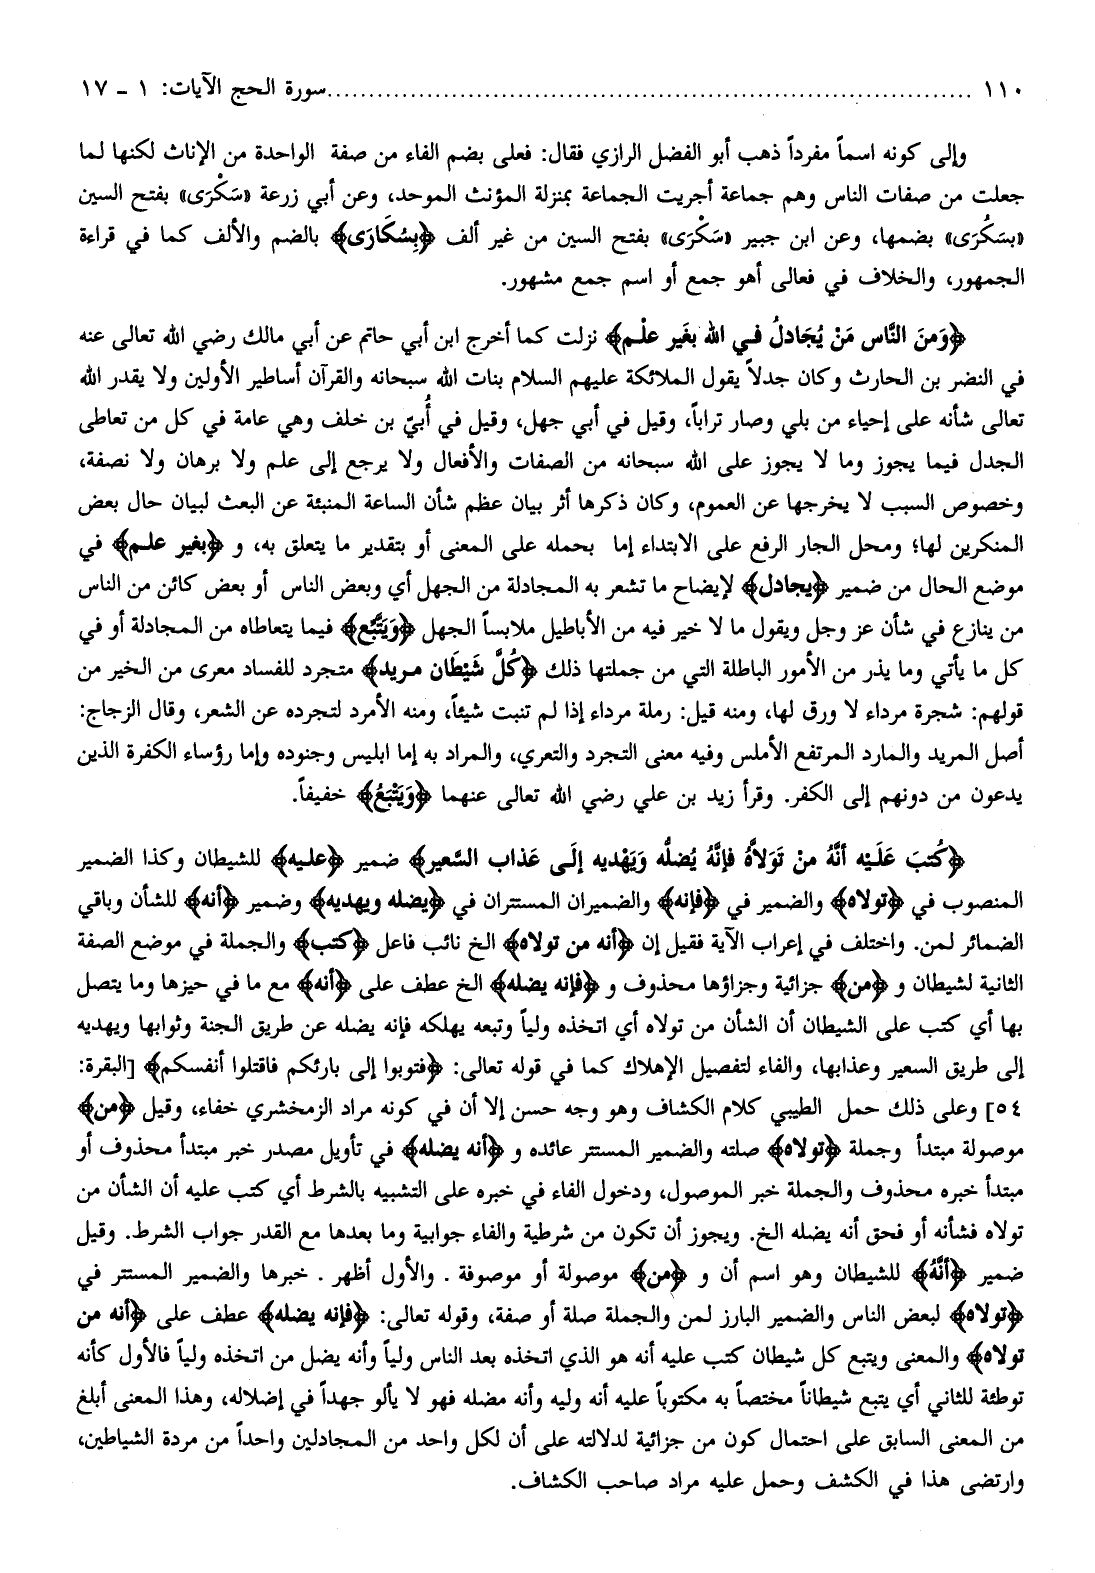 ١١٠ ........................................................................... سورة الحج الآيات: ١ ـ ١٧
وإلى كونه اسماً مفرداً ذهب أبو الفضل الرازي فقال: فعلى بضم الفاء من صفة الواحدة من الإناث لكنها لما
جعلت من صفات الناس وهم جماعة أجريت الجماعة بمنزلة المؤنث الموحد، وعن أبي زرعة «سَكْرَى» بفتح السين
«بسَكُرَى» بضمها، وعن ابن جبير «سَكْرَى» بفتح السين من غير ألف ﴿بِسُكَارَى﴾ بالضم والألف كما في قراءة
الجمهور، والخلاف في فعالى أهو جمع أو اسم جمع مشهور.
﴿وَمنَ النَّاس مَنْ يُجَادلُ فـي الله بغَير علْـم﴾ نزلت كما أخرج ابن أبي حاتم عن أبي مالك رضي الله تعالى عنه
في النضر بن الحارث وكان جدلاً يقول الملائكة عليهم السلام بنات الله سبحانه والقرآن أساطير الأولين ولا يقدر الله
تعالى شأنه على إحياء من بلي وصار تراباً، وقيل في أبي جهل، وقيل في أُبيّ بن خلف وهي عامة في كل من تعاطى
الجدل فيما يجوز وما لا يجوز على الله سبحانه من الصفات والأفعال ولا يرجع إلى علم ولا برهان ولا نصفة،
وخصوص السبب لا يخرجها عن العموم، وكان ذكرها أثر بيان عظم شأن الساعة المنبئة عن البعث لبيان حال بعض
المنكرين لها؛ ومحل الجار الرفع على الابتداء إما بحمله على المعنى أو بتقدير ما يتعلق به، و ﴿بغير علـم﴾ في
موضع الحال من ضمير ﴿يجادل﴾ لإيضاح ما تشعر به المجادلة من الجهل أي وبعض الناس أو بعض كائن من الناس
من ينازع في شأن عز وجل ويقول ما لا خير فيه من الأباطيل ملابساً الجهل ﴿وَيَتَّبع﴾ فيما يتعاطاه من المجادلة أو في
كل ما يأتي وما يذر من الأمور الباطلة التي من جملتها ذلك ﴿كُلَّ شَيْطَان مـريد﴾ متجرد للفساد معرى من الخير من
قولهم: شجرة مرداء لا ورق لها، ومنه قيل: رملة مرداء إذا لم تنبت شيئاً، ومنه الأمرد لتجرده عن الشعر، وقال الزجاج:
أصل المريد والمارد المرتفع الأملس وفيه معنى التجرد والتعري، والمراد به إما ابليس وجنوده وإما رؤساء الكفرة الذين
يدعون من دونهم إلى الكفر. وقرأ زيد بن علي رضي الله تعالى عنهما ﴿وَيَتْبَعُ﴾ خفيفاً.
﴿كُتبَ عَلَيْه أنَّهُ منْ تَوَلاَّهُ فإنَّهُ يُضلُّه وَيَهْديه إلَـى عَذاب السَّعير﴾ ضمير ﴿عليه﴾ للشيطان وكذا الضمير
المنصوب في ﴿تولاه﴾ والضمير في ﴿فإنه﴾ والضميران المستتران في ﴿يضله ويهديه﴾ وضمير ﴿أنه﴾ للشأن وباقي
الضمائر لمن. واختلف في إعراب الآية فقيل إن ﴿أنه من تولاه﴾ الخ نائب فاعل ﴿كتب﴾ والجملة في موضع الصفة
الثانية لشيطان و ﴿من﴾ جزائية وجزاؤها محذوف و ﴿فإنه يضله﴾ الخ عطف على ﴿أنه﴾ مع ما في حيزها وما يتصل
بها أي كتب على الشيطان أن الشأن من تولاه أي اتخذه ولياً وتبعه يهلكه فإنه يضله عن طريق الجنة وثوابها ويهديه
إلى طريق السعير وعذابها، والفاء لتفصيل الإهلاك كما في قوله تعالى: ﴿فتوبوا إلى بارئكم فاقتلوا أنفسكم﴾ [البقرة:
٥٤] وعلى ذلك حمل الطيبي كلام الكشاف وهو وجه حسن إلا أن في كونه مراد الزمخشري خفاء، وقيل ﴿من﴾
موصولة مبتدأ وجملة ﴿تولاه﴾ صلته والضمير المستتر عائده و ﴿أنه يضله﴾ في تأويل مصدر خبر مبتدأ محذوف أو
مبتدأ خبره محذوف والجملة خبر الموصول، ودخول الفاء في خبره على التشبيه بالشرط أي كتب عليه أن الشأن من
تولاه فشأنه أو فحق أنه يضله الخ. ويجوز أن تكون من شرطية والفاء جوابية وما بعدها مع القدر جواب الشرط. وقيل
ضمير ﴿أنَّهُ﴾ للشيطان وهو اسم أن و ﴿من﴾ موصولة أو موصوفة . والأول أظهر . خبرها والضمير المستتر في
﴿تولاه﴾ لبعض الناس والضمير البارز لمن والجملة صلة أو صفة، وقوله تعالى: ﴿فإنه يضله﴾ عطف على ﴿أنه من
تولاه﴾ والمعنى ويتبع كل شيطان كتب عليه أنه هو الذي اتخذه بعد الناس ولياً وأنه يضل من اتخذه ولياً فالأول كأنه
توطئة للثاني أي يتبع شيطاناً مختصاً به مكتوباً عليه أنه وليه وأنه مضله فهو لا يألو جهداً في إضلاله، وهذا المعنى أبلغ
من المعنى السابق على احتمال كون من جزائية لدلالته على أن لكل واحد من المجادلين واحداً من مردة الشياطين،
وارتضى هذا في الكشف وحمل عليه مراد صاحب الكشاف.